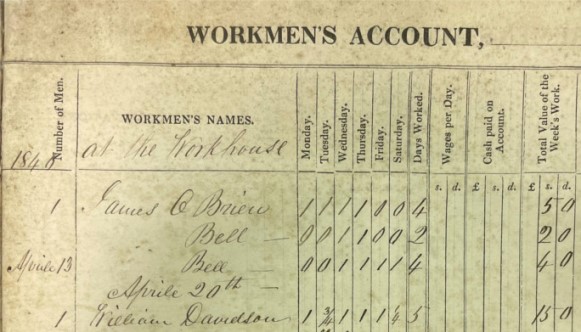 WORKMEN'S ACCOUNT,
Number of Men. WORKMEN'S NAMES. Monday. Tuesday. Wednesday. Thursday. Friday. Saturday. Days Worked. Wages per Day. Cash paid on Account. Total Value of the Week's Work.
1848 at the Workhouse
s. d. £ s. d. £ s. d.
1 James O Brien 1 1 1 1 0 0 4 5 0
Bell — 0 0 1 1 0 0 2 2 0
Aprile 13 Bell — 0 0 1 1 1 1 4 4 0
Aprile 20th —
1 William Davidson 1 3/4 1 1 1 1/4 5 15 0